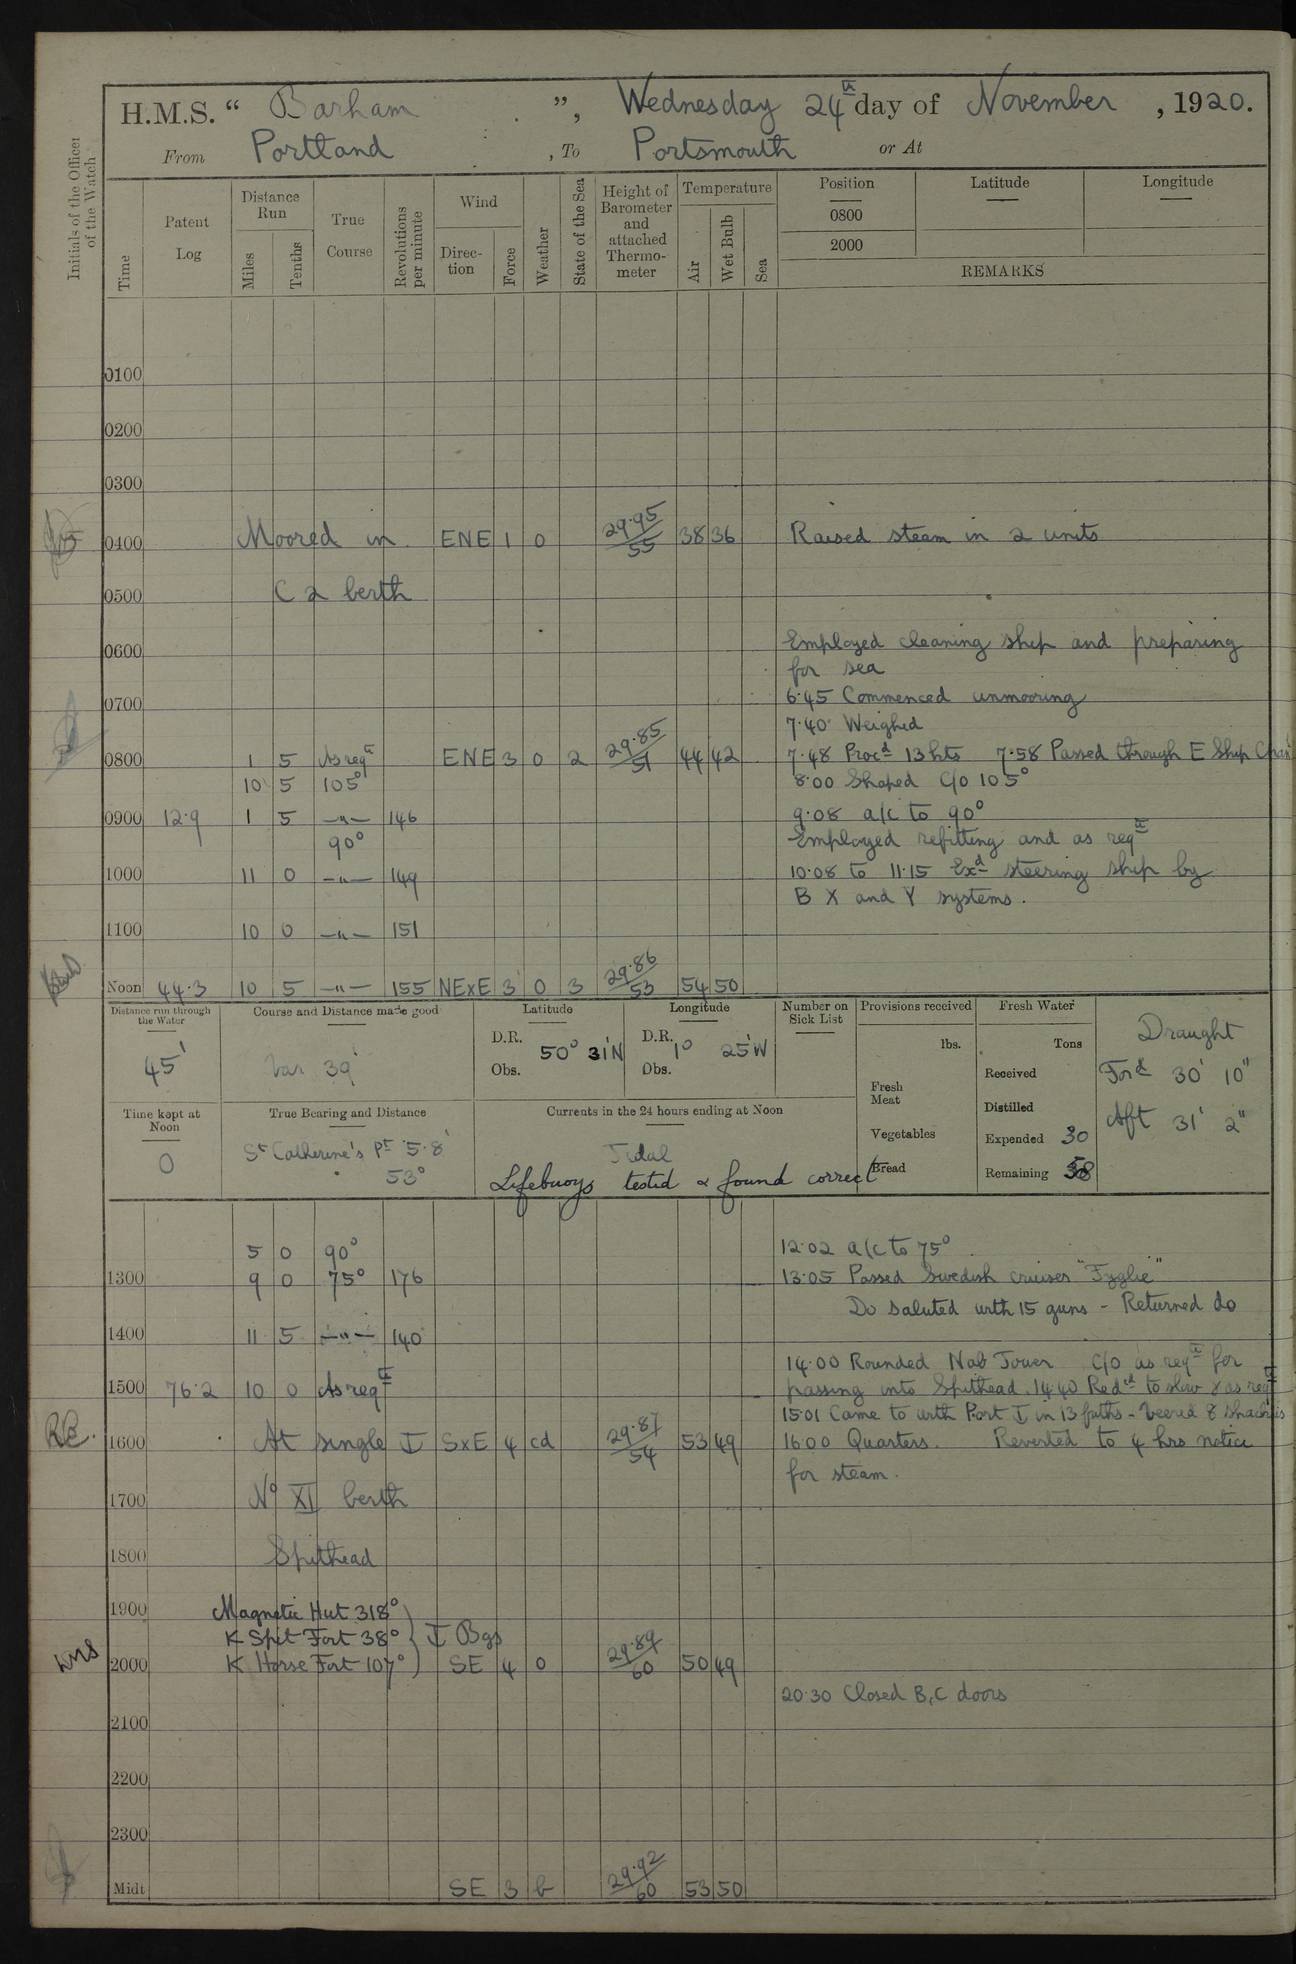 H.M.S. “ Barham ”, Wednesday 24th day of November, 1920.
From Portland, To Portsmouth or At
Initials of the Officer of the Watch
Time
Patent Log
Distance Run
Miles
Tenths
True Course
Revolutions per minute
Wind
Direction
Force
Weather
State of the Sea
Height of Barometer and attached Thermometer
Temperature
Air
Wet Bulb
Sea
Position
0800
2000
Latitude
Longitude
REMARKS
0100
0200
0300
0400 Moored in ENE 1 0 29.95/55 38 36 Raised steam in 2 units
0500 C 2 berth
Employed cleaning ship and preparing
0600
for sea
6.45 Commenced unmooring
0700
7.40 Weighed
0800 1 5 As reqte ENE 3 0 2 29.85/51 44 42 7.48 Procd 13 kts 7.58 Passed through E Ship
10 5 105° 8.00 Shaped C/o 105°
0900 12.9 1 5 —"— 146 9.08 a/c to 90°
90° Employed refitting and as reqte
1000 11 0 —"— 149 10.08 to 11.15 Exd steering ship by
B X and Y systems.
1100 10 0 —"— 151
Noon 44.3 10 5 —"— 155 NExE 3 0 3 29.86/53 54 50
Distance run through the Water
45'
Course and Distance made good
Var 39'
Latitude
D.R. 50° 31'N
Obs.
Longitude
D.R. 1° 25'W
Obs.
Number on Sick List
Provisions received
lbs.
Fresh Meat
Vegetables
Bread
Fresh Water
Tons
Received
Distilled
Expended 30
Remaining
Draught
Ford 30' 10"
Aft 31' 2"
Time kept at Noon
0
True Bearing and Distance
St Catherine's Pt 5.8'
53°
Currents in the 24 hours ending at Noon
Tidal
Lifebuoys tested & found correct
5 0 90° 12.02 a/c to 75°
1300 9 0 75° 176 13.05 Passed Swedish cruiser "Fyglie"
Do saluted with 15 guns - Returned do
1400 11 5 —"— 140
14.00 Rounded Nab Tower C/o as reqte for
1500 76.2 10 0 As reqte passing into Spithead. 14.40 Redcd to slow & as reqte
15.01 Came to with Port ⚓ in 13 faths - Veered 8 shackles
RB.
1600 At single ⚓ SxE 4 cd 29.87/54 53 49 16.00 Quarters. Reverted to 4 hrs notice
for steam.
1700 No XI berth
1800 Spithead
1900 Magnetic Hut 318°
K Spit Fort 38° } ⚓ Bgs
2000 K Horse Fort 107° SE 4 0 29.89/60 50 49
20.30 Closed B, C doors
2100
2200
2300
Midt SE 3 b 29.92/60 53 50